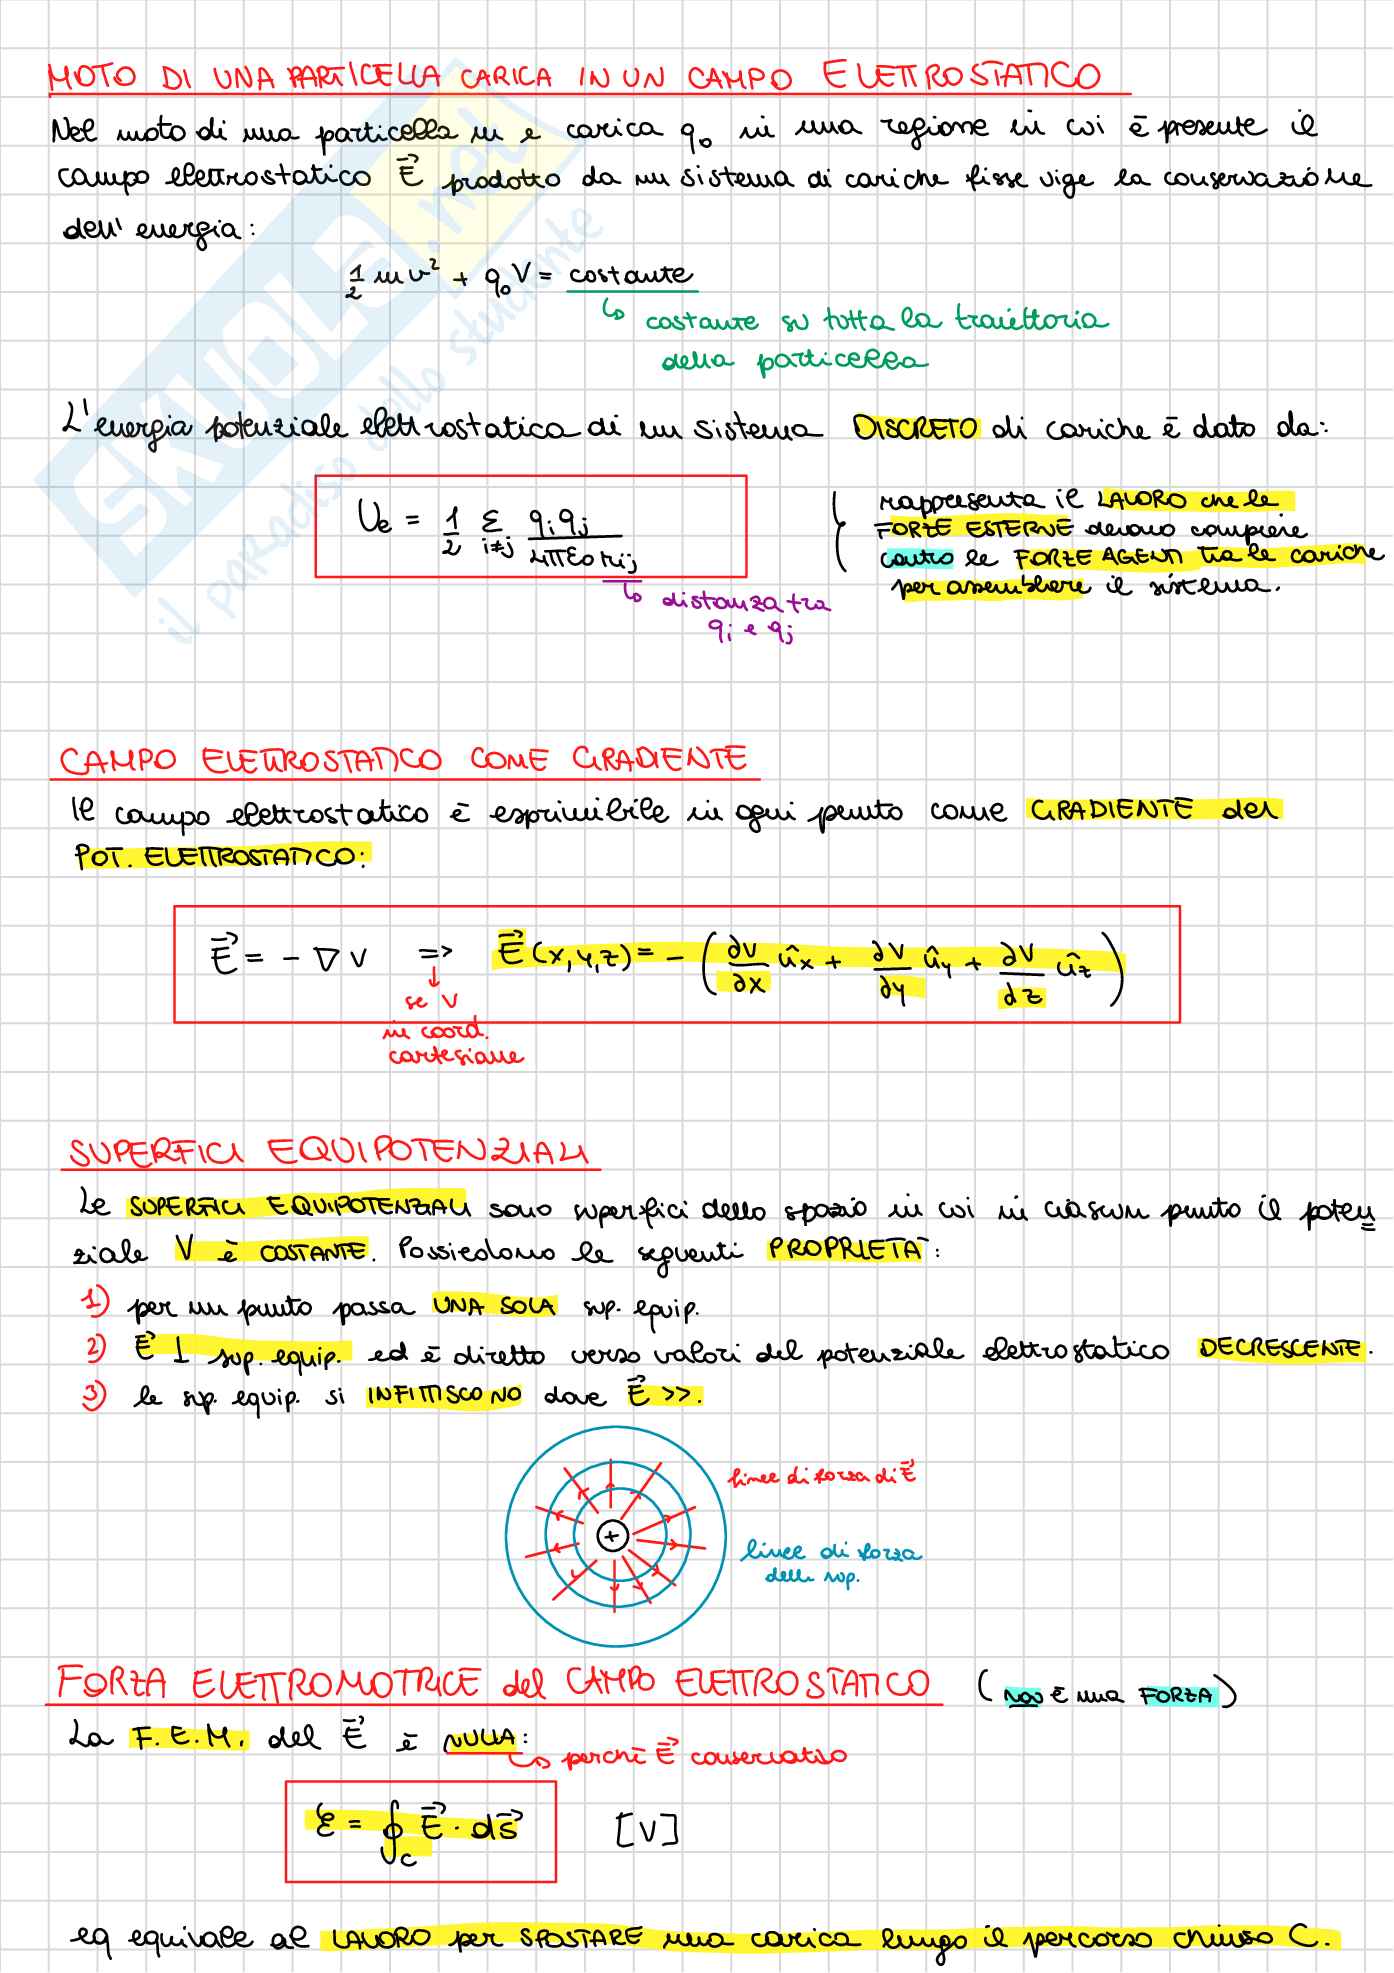 MOTO DI UNA PARTICELLA CARICA IN UN CAMPO ELETTROSTATICO
Nel moto di una particella m e carica q₀ in una regione in cui è presente il
campo elettrostatico E⃗ prodotto da un sistema di cariche fisse vige la conservazione
dell'energia:
1/2 mv² + q₀V = costante
↳ costante su tutta la traiettoria
della particella
L'energia potenziale elettrostatica di un sistema DISCRETO di cariche è dato da:
Ue = 1/2 Σ i≠j qi qj / 4πε₀ rij
↳ distanza tra
qi e qj
rappresenta il LAVORO che le
FORZE ESTERNE devono compiere
contro le FORZE AGENTI tra le cariche
per assemblare il sistema.
CAMPO ELETTROSTATICO COME GRADIENTE
Il campo elettrostatico è esprimibile in ogni punto come GRADIENTE del
POT. ELETTROSTATICO:
E⃗ = - ∇V => E⃗(x,y,z) = - (∂V/∂x ûx + ∂V/∂y ûy + ∂V/dz ûz)
↓
se V
in coord.
cartesiane
SUPERFICI EQUIPOTENZIALI
Le SUPERFICI EQUIPOTENZIALI sono superfici dello spazio in cui in ciascun punto il poten
ziale V è COSTANTE. Possiedono le seguenti PROPRIETÀ:
1) per un punto passa UNA SOLA sup. equip.
2) E⃗ ⊥ sup. equip. ed è diretto verso valori del potenziale elettrostatico DECRESCENTE.
3) le sup. equip. si INFITTISCONO dove E⃗ >>.
linee di forza di E⃗
+
linee di forza
delle sup.
FORZA ELETTROMOTRICE del CAMPO ELETTROSTATICO (NON È una FORZA)
La F.E.M. del E⃗ è NULLA:
↳ perché E⃗ conservativo
ℰ = ∮C E⃗ · ds⃗ [V]
eq equivale al LAVORO per SPOSTARE una carica lungo il percorso chiuso C.
SKUOLA.net
il paradiso dello studente